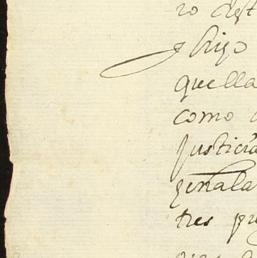 ro dest
y hizo
quella
como
Justicia
señala
tres pr